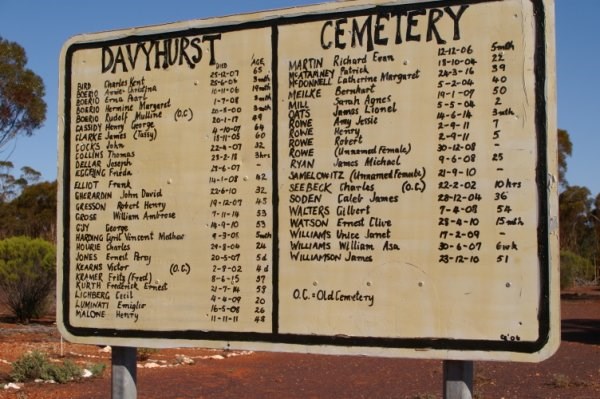 DAVYHURST CEMETERY
DIED AGE
BIRD Charles Kent 25-12-07 65
BOERIO Annie Christina 25-6-06 3mth
BOERIO Erma Mary 10-11-06 19mth
BOERIO Hermine Margaret 1-7-08 8mth
BOERIO Rudolf Mulline (O.C.) 20-5-00 2mth
CASSIDY Henry George 20-1-17 49
CLARKE James (Tassy) 4-10-07 64
COCKS John 18-11-05 60
COLLINS Thomas 22-4-07 32
DELLAR Joseph 23-2-18 3hrs
EGGRING Frieda 25-6-07
ELLIOT Frank 14-1-08 42
GHERARDIN John David 22-6-10 32
GRESSON Robert Henry 19-12-07 45
GROSE William Ambrose 7-11-14 53
GUY George 24-9-10 53
HARDING Cyril Vincent Mathew 4-3-05 5mth
HOURIE Charles 29-8-04 24
JONES Ernest Percy 20-5-07 5d
KEARNS Victor (O.C.) 2-8-02 4d
KRAMER Fritz (Fred) 8-6-15 57
KURTH Frederick Ernest 21-7-14 59
LICHBERG Cecil 4-4-09 20
LUMINATI Emiglir 16-5-08 26
MALONE Henry 11-11-11 48
MARTIN Richard Eean 12-12-06 5mth
McATAMNEY Patrick 18-10-04 22
McDONNELL Catherine Margaret 24-3-16 39
MEILKE Bernhart 5-2-04 40
MILL Sarah Agnes 19-1-07 50
OATS James Lionel 5-5-04 2
ROWE Amy Jessie 14-6-14 3mth
ROWE Henry 2-9-11 7
ROWE Robert 2-9-11 5
ROWE (Unnamed Female) 30-12-08 -
RYAN James Michael 9-6-08 25
JAMELOWITZ (Unnamed Female) 21-9-10 -
SEEBECK Charles (O.C.) 22-2-02 10hrs
SODEN Caleb James 28-12-04 36
WALTERS Gilbert 7-4-08 54
WATSON Ernest Clive 28-4-10 15mth
WILLIAMS Unice Janet 17-2-09 -
WILLIAMS William Asa 30-6-07 6wk
WILLIAMSON James 23-12-10 51
O.C. = Old Cemetery